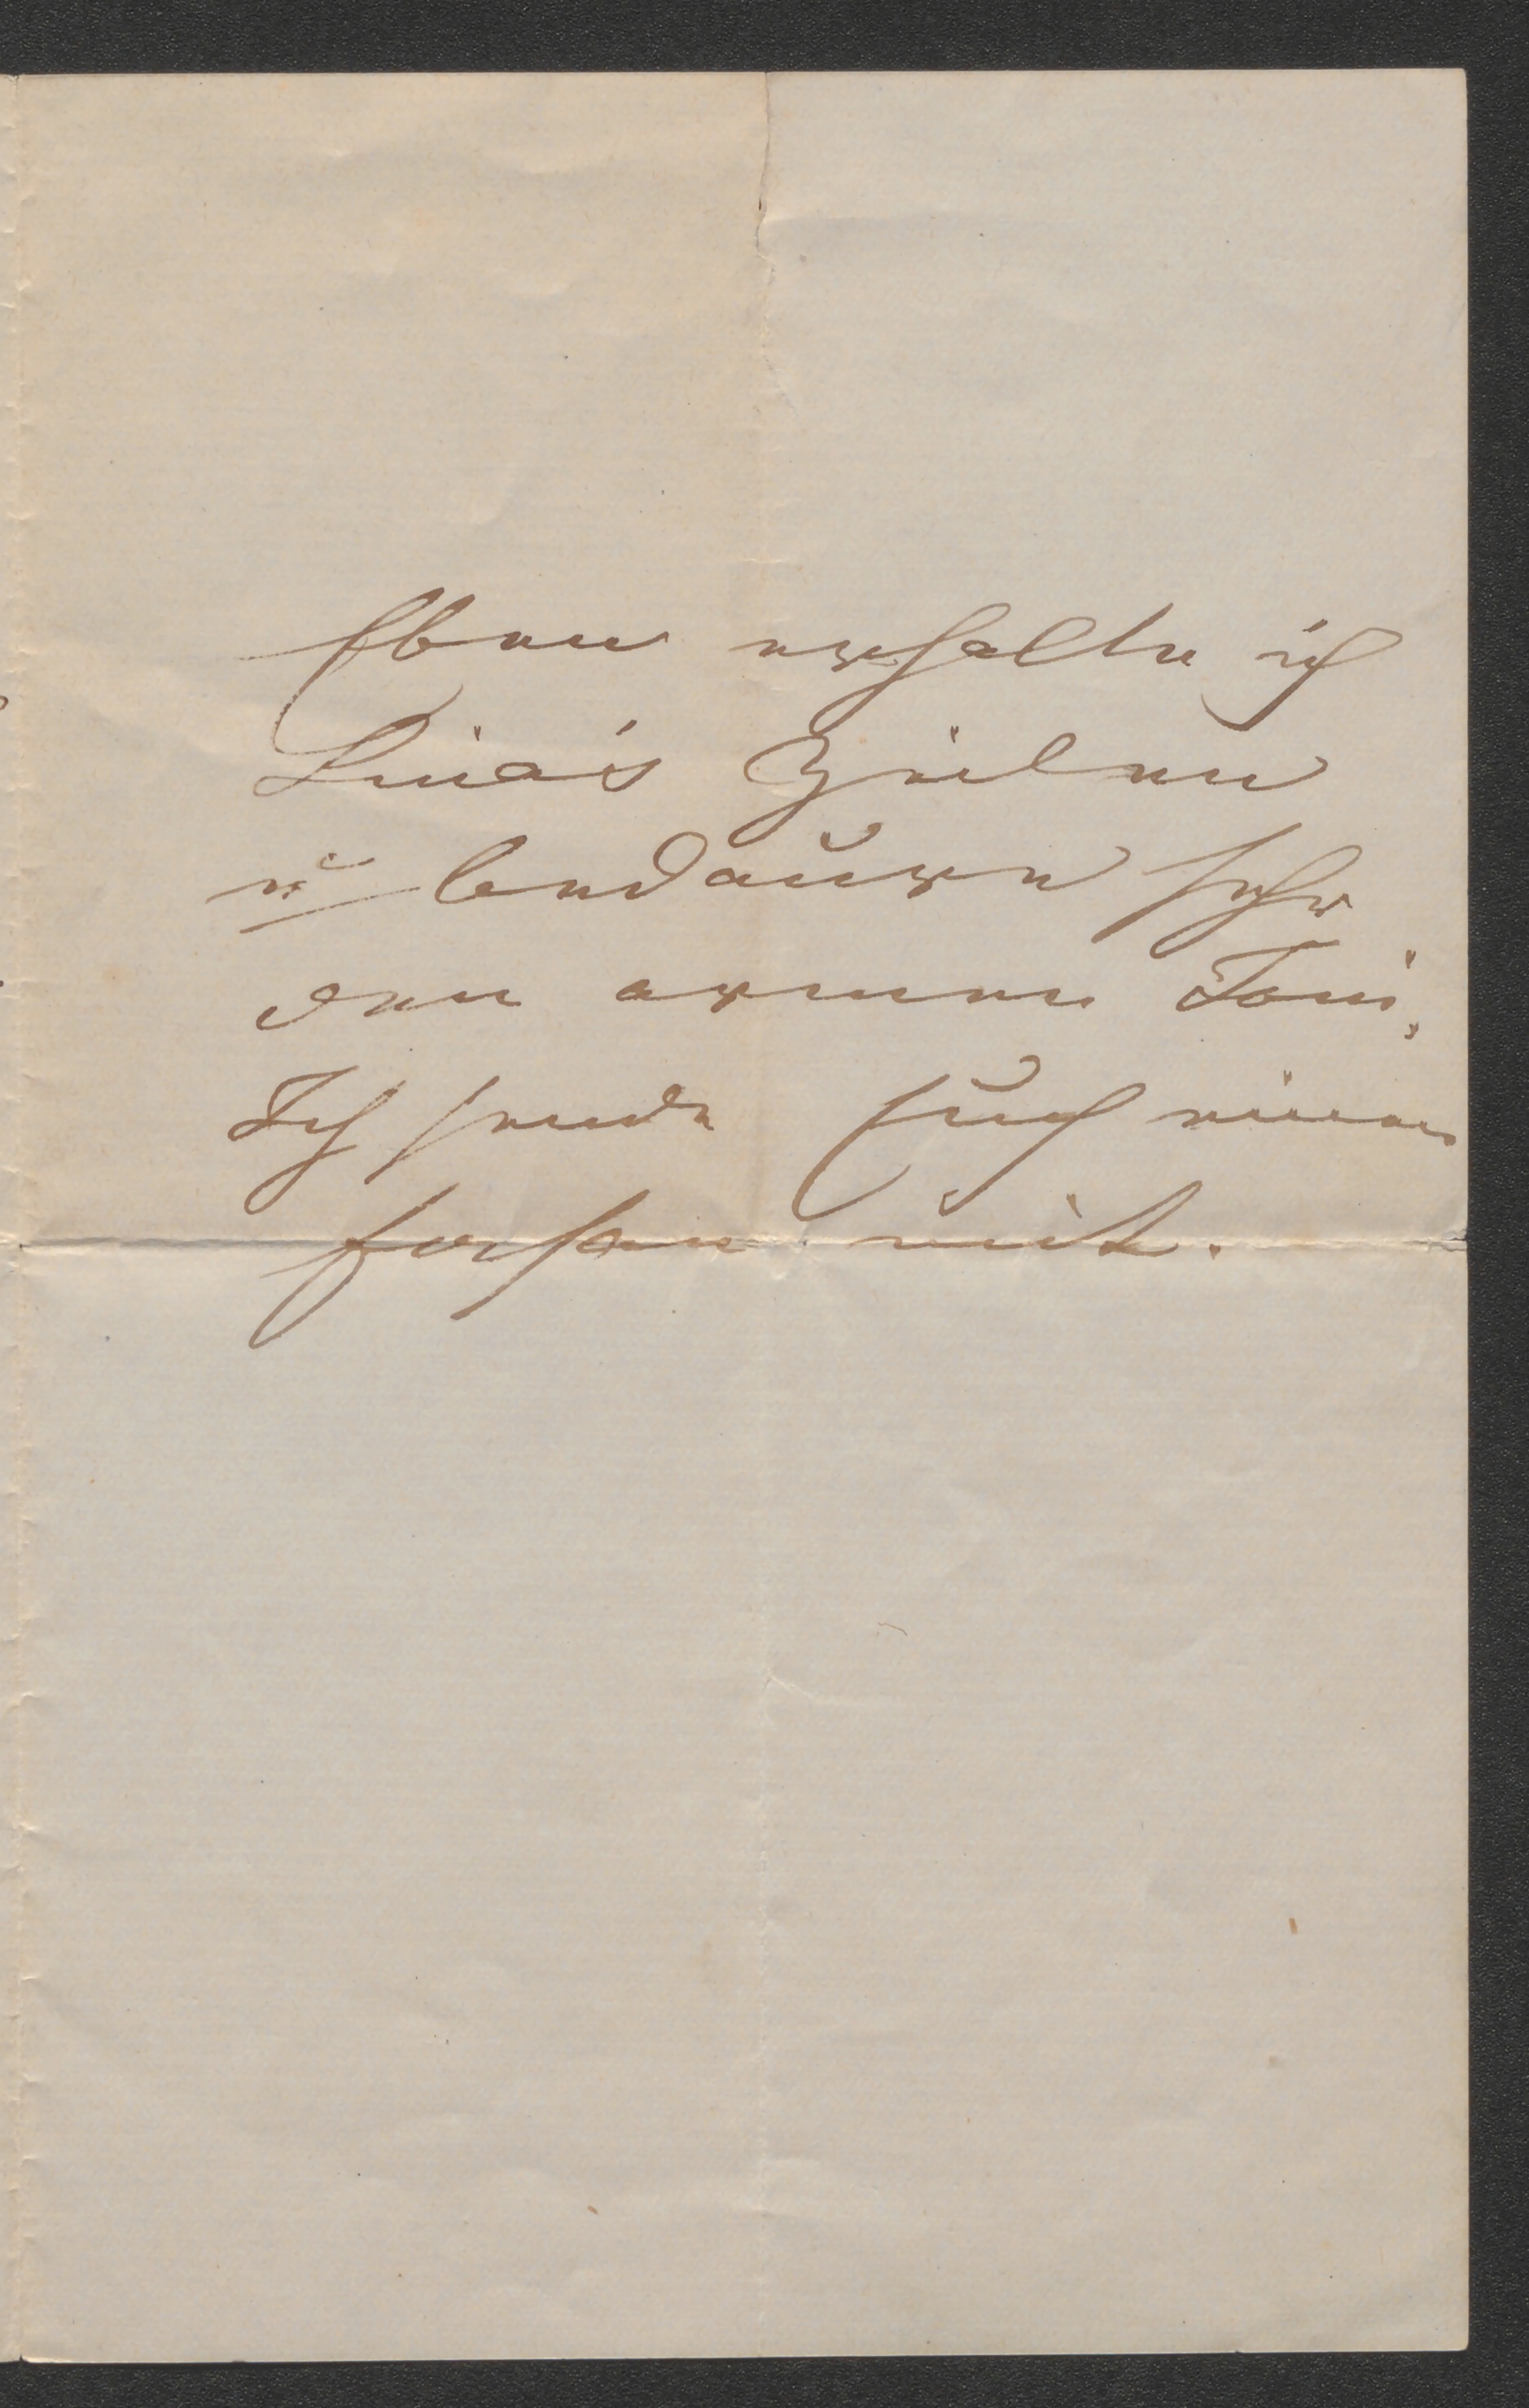 Eben erhalte ich
Lina's Zeilen
u. bedauere sehr
den armen Toni.
Ich sende Euch einen
mit.